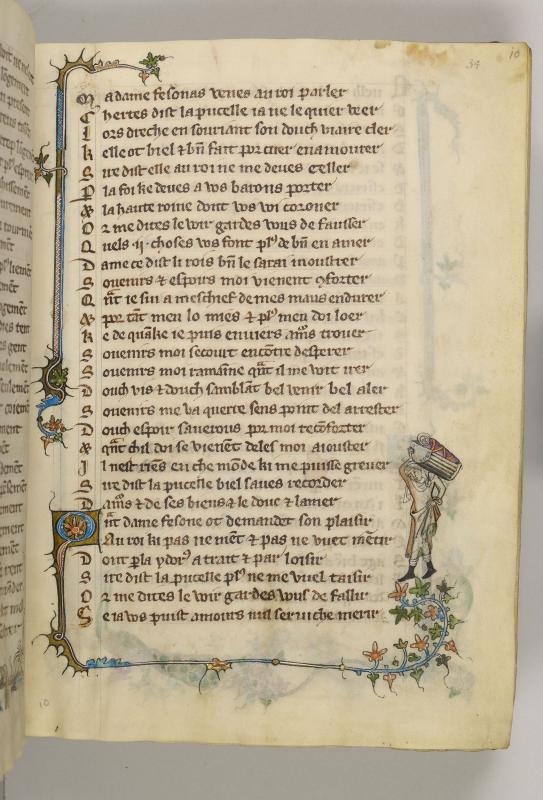 34
10
M adame fesonas venes au roi parler
C hertes dist la pucelle ia ne le quier veer
L ors dreche en souriant son douch viaire cler
K elle ot biel & bñ fait por cuer enamourer
S ire dist elle au roi ne me deves celler
P la foi ke deves a vos barons porter
& la haute roine dont vos voi coroner
O r me dites le voir gardes vous de fausser
Q uels .ii. choses vos font pl⁹ de bñ en amer
D ame ce dist li rois bñ le sarai moustrer
S ouenirs & espoirs moi vienent ꝯforter
Q ñt ie sui a meschief de mes maus endurer
& por tãt men lo mies & pl⁹ men doi loer
K e de quãke ie puis envers amõs trouer
S ouenirs moi secourt encõtre desperer
S ouenirs moi ramaine qñt il me voit irer
D ouch vis & douch samblãt bel venir bel aler
S ouenirs me va querre sens point del arrester
D ouch espoir sauerous por moi recõforter
& qñt chil doi se vienẽt deles moi aiouster
I l nest riẽs en che mõde ki me puisse greuer
S ire dist la pucelle biel saves recorder
D amõs & de ses biens & le douc & lamer
Q ñt dame fesone ot demandet son plaisir
Au roi ki pas ne mẽt & pas ne vuet mẽtir
D ont p̲la ydor⁹ a trait & par loisir
S ire dist la pucelle pl⁹ ne me vuel taisir
O r me dites le voir gardes vous de fallir
S e ia vos puist amours nul seruiche merir
10